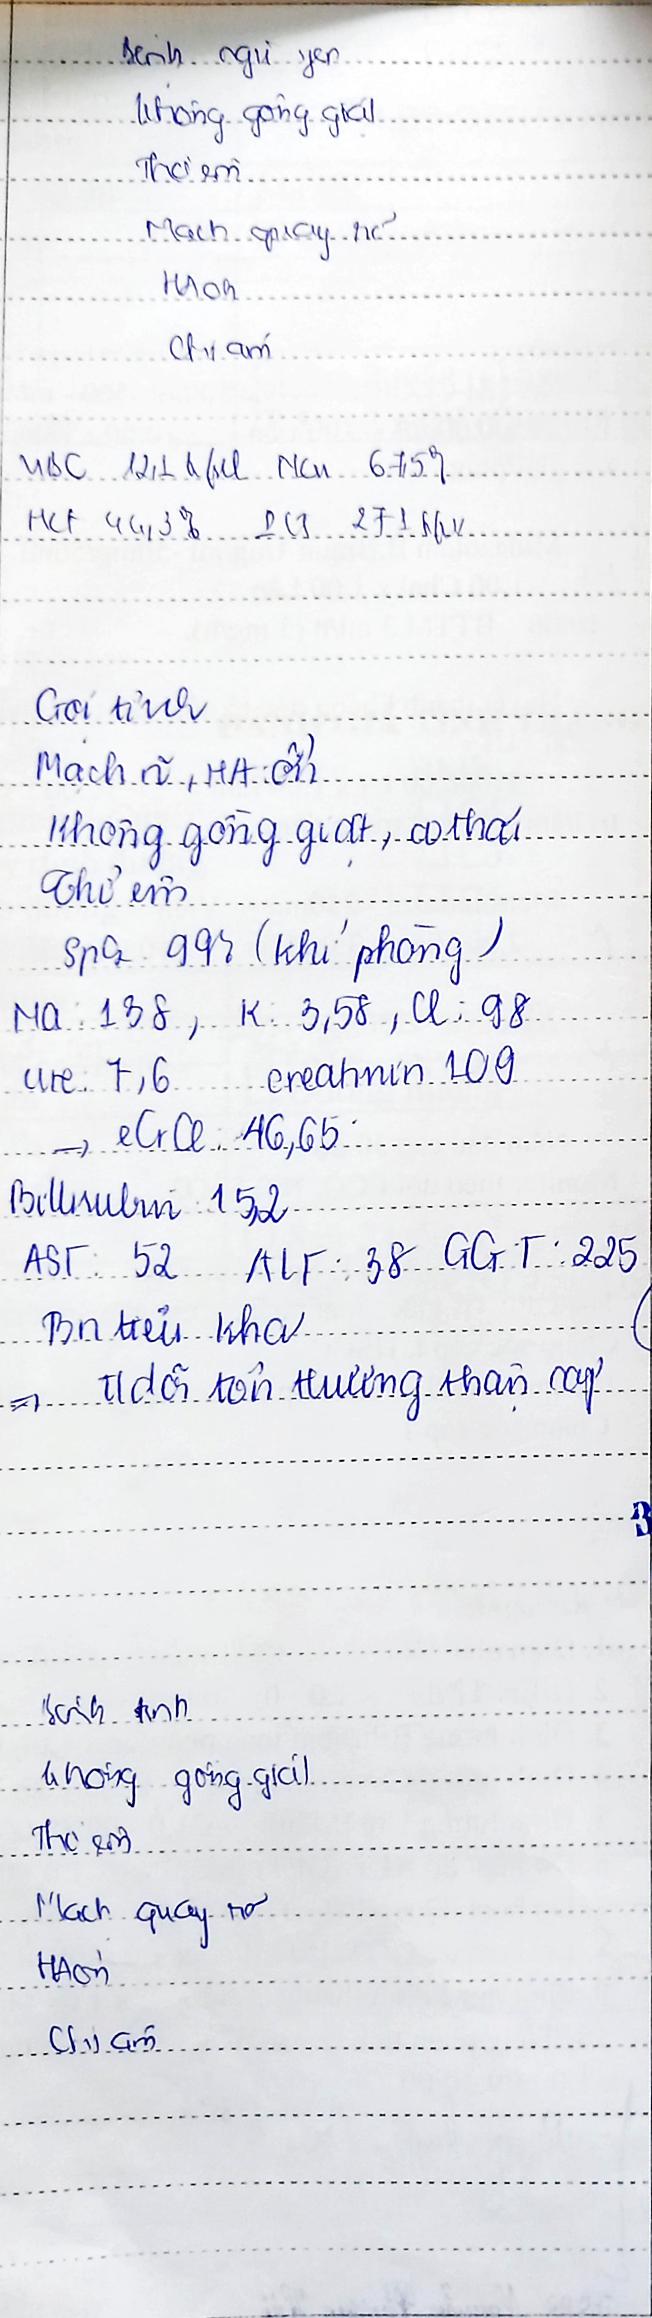 Bệnh ngủ yên
Không gồng giật
Thở êm
Mạch quay rõ
HA ổn
Chi ấm
WBC 12,1 k/µl Neu 67,5%
HCT 44,3% PLT 271 k/µl
Gọi tỉnh
Mạch rõ, HA: ổn
Không gồng giật, co thắt
Thở êm
SpO2 99% (khí phòng)
Na: 138, K: 3,58, Cl: 98
Ure: 7,6 creatinin 109
→ eCrCl: 46,65
Bilirubin: 15,2
AST: 52 ALT: 38 GGT: 225
Bn tiểu khá
⇒ Tdõi tổn thương thận cấp
3
Bệnh tỉnh
Không gồng giật
Thở êm
Mạch quay rõ
HA ổn
Chi ấm